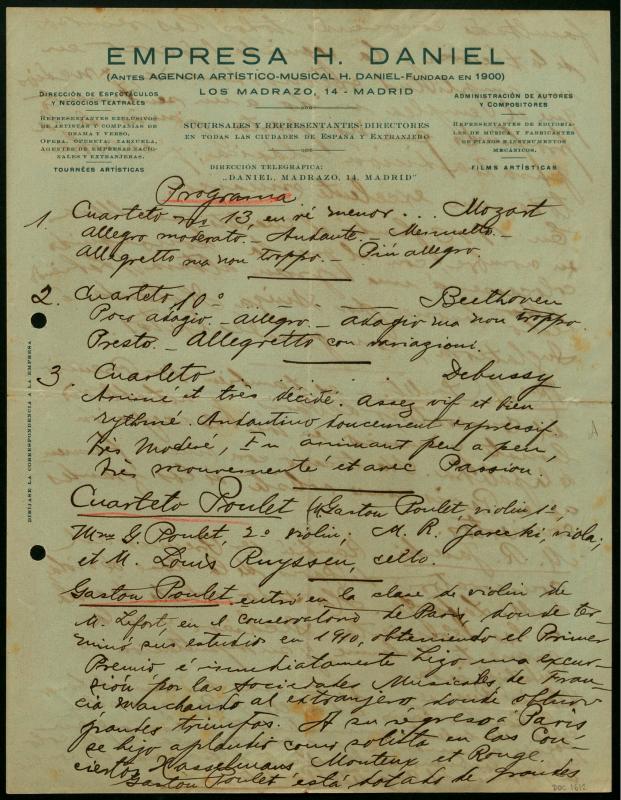 EMPRESA H. DANIEL
(ANTES AGENCIA ARTÍSTICO-MUSICAL H. DANIEL-FUNDADA EN 1900)
LOS MADRAZO, 14 - MADRID
DIRECCIÓN DE ESPECTÁCULOS
Y NEGOCIOS TEATRALES
REPRESENTANTES EXLUSIVOS
DE ARTISTAS Y COMPAÑIAS DE
DRAMA Y VERSO,
OPERA, OPERETA, ZARZUELA,
AGENTES DE EMPRESAS NACIO-
NALES Y EXTRANJERAS.
TOURNÉES ARTÍSTICAS
SUCURSALES Y REPRESENTANTES-DIRECTORES
EN TODAS LAS CIUDADES DE ESPAÑA Y EXTRANJERO
DIRECCIÓN TELEGRÁFICA:
„DANIEL, MADRAZO, 14, MADRID"
ADMINISTRACIÓN DE AUTORES
Y COMPOSITORES
REPRESENTANTES DE EDITORIA-
LES DE MÚSICA Y FABRICANTES
DE PIANOS E INSTRUMENTOS
MECÁNICOS.
FILMS ARTÍSTICAS
DIRÍJASE LA CORRESPONDENCIA A LA EMPRESA
Programa.
1. Cuarteto nº 13, en ré menor... Mozart
Allegro moderato.- Andante.- Menuetto.-
Allegretto ma non troppo.- Più allegro.
2. Cuarteto 10º Beethoven
Poco adagio.- Allegro.- Adagio ma non troppo.
Presto.- Allegretto con variazioni.
3. Cuarteto Debussy
Animé et très décidé. Assez vif et bien
rythmé. Andantino doucement expressif.
Très Moderé, En animant peu a peu,
très mouvementé et avec Passion.
Cuarteto Poulet Gaston Poulet, violin 1º,
Mme G. Poulet, 2º violin, M. R. Jarecki, viola;
et M. Louis Ruyssen, cello.
Gaston Poulet entró en la clase de violin de
M. Lefort, en el Conservatorio de Paris, donde ter-
minó sus estudio en 1910, obteniendo el Primer
Premio é inmediatamente hizo una excur-
sión por las Sociedades Musicales de Fran-
cia marchando al extranjero donde obtuvo
grandes triunfos. A su regreso a Paris
se hizo aplaudir como solista en las Con-
ciertos Hasselmans Monteux et Rouge.
Gaston Poulet está dotado de grandes
DOC 1612